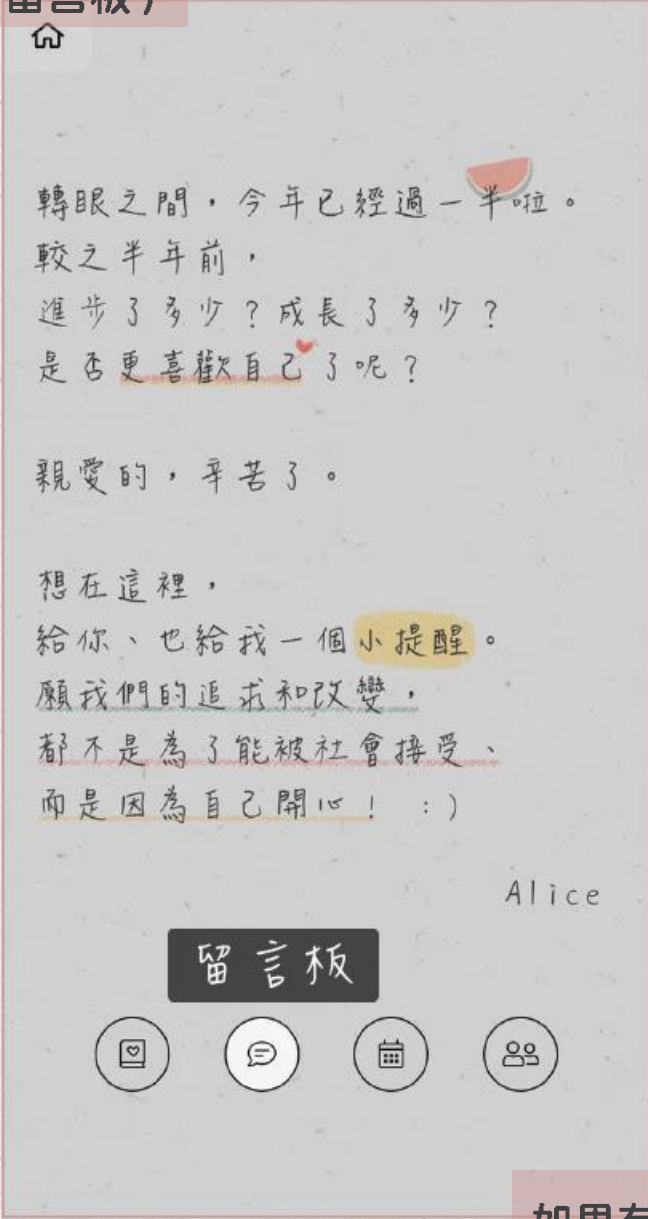 留言板
轉眼之間，今年已經過一半啦。
較之半年前，
進步了多少？成長了多少？
是否更喜歡自己了呢？
親愛的，辛苦了。
想在這裡，
給你、也給我一個小提醒。
願我們的追求和改變，
都不是為了能被社會接受、
而是因為自己開心！ :)
Alice
留言板
如果有